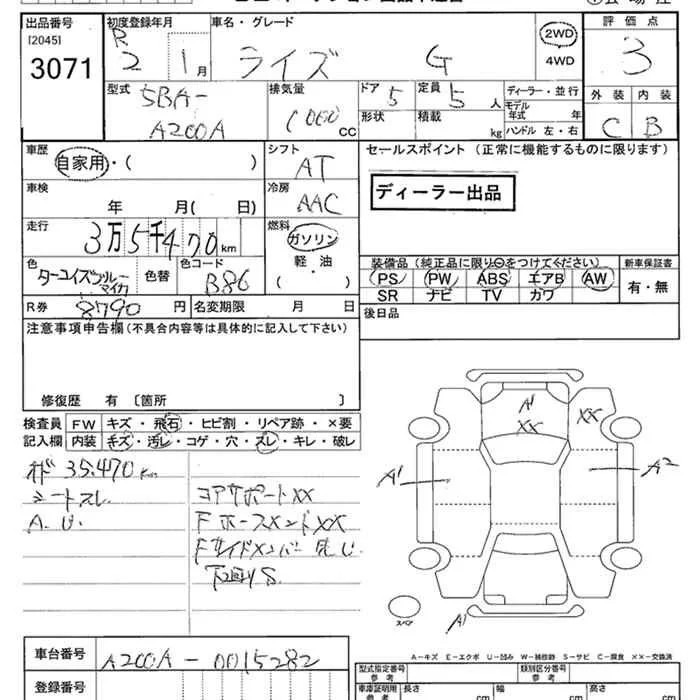 出品番号
[2045]
3071
初度登録年月
R 2 1月
車名・グレード
ライズ G
2WD
4WD
評価点
3
型式
5BA-
A200A
排気量
1000 CC
ドア
5
定員
5人
形状
積載
kg
ディーラー・並行
モデル年式 年
ハンドル 左・右
外装
内装
C
B
車歴
自家用・( )
シフト
AT
セールスポイント (正常に機能するものに限ります)
ディーラー出品
車検
年 月( 日)
冷房
AAC
走行
3万5千470km
燃料
ガソリン
軽・油
( )
色
ターコイズブルーマイカ
色替
色コード
B86
装備品 (純正品に限り○をつけてください)
PS PW ABS エアB AW
SR ナビ TV カワ
新車保証書
有・無
R券
8790円
名変期限 月 日
後日品
注意事項申告欄(不具合内容等は具体的に記入して下さい)
修復歴 有〔箇所 〕
検査員記入欄
FW キズ・飛石・ヒビ割・リペア跡・×要
内装 キズ・汚レ・コゲ・穴・スレ・キレ・破レ
35.470km
シートスレ
A.U.
コアサポートXX
FホースメントXX
Fサイドメンバー
下回りS
A1
XX
XX
A1
A2
A1
スペア
A-キズ E-エクボ U-凹み W-補修跡 S-サビ C-腐食 XX-交換済
車台番号
A200A-0015282
登録番号
型式指定番号
参考
類別区分番号
参考
車庫証明用
参考
長さ
cm
幅
cm
高さ
cm